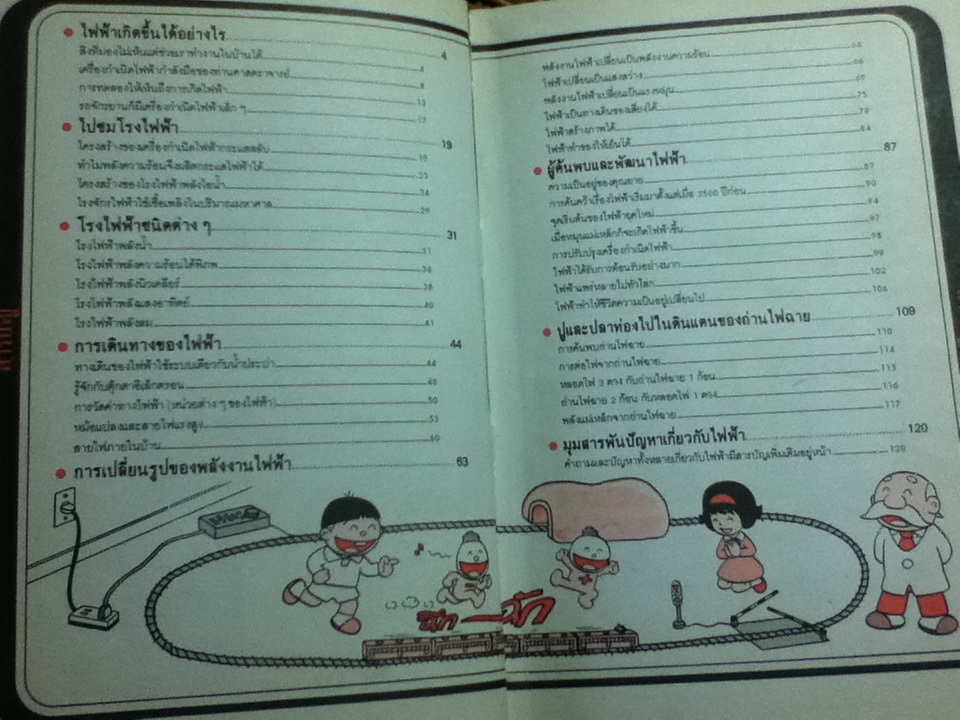 ไฟฟ้าเกิดขึ้นได้อย่างไร 4
สิ่งที่มองไม่เห็นแต่ช่วยเราทำงานในบ้านได้
เครื่องกำเนิดไฟฟ้ากำลังมือของท่านศาสตราจารย์
การทดลองให้เห็นถึงการเกิดไฟฟ้า 8
รถจักรยานก็มีเครื่องกำเนิดไฟฟ้าเล็ก ๆ 13
ไปชมโรงไฟฟ้า 19
โครงสร้างของเครื่องกำเนิดไฟฟ้ากระแสสลับ 19
ทำไมพลังความร้อนจึงผลิตกระแสไฟฟ้าได้ 23
โครงสร้างของโรงไฟฟ้าพลังไอน้ำ
โรงจักรไฟฟ้าใช้เชื้อเพลิงในปริมาณมหาศาล 29
โรงไฟฟ้าชนิดต่าง ๆ 31
โรงไฟฟ้าพลังน้ำ 31
โรงไฟฟ้าพลังความร้อนใต้พิภพ
โรงไฟฟ้าพลังนิวเคลียร์
โรงไฟฟ้าพลังแสงอาทิตย์ 40
โรงไฟฟ้าพลังลม 41
การเดินทางของไฟฟ้า 44
ทางเดินของไฟฟ้าใช้ระบบเดียวกับน้ำประปา 44
รู้จักกับตุ๊กตาอิเล็กตรอน 48
การวัดค่าทางไฟฟ้า (หน่วยต่าง ๆ ของไฟฟ้า) 50
หม้อแปลงและสายไฟแรงสูง 53
สายไฟภายในบ้าน 60
การเปลี่ยนรูปของพลังงานไฟฟ้า 63
พลังงานไฟฟ้าเปลี่ยนเป็นพลังงานความร้อน
ไฟฟ้าเปลี่ยนเป็นแสงสว่าง 66
พลังงานไฟฟ้าเปลี่ยนเป็นแรงหมุน 69
ไฟฟ้าเป็นทางเดินของเสียงได้ 75
ไฟฟ้าสร้างภาพได้ 79
ไฟฟ้าทำของให้เย็นได้ 84
ผู้ค้นพบและพัฒนาไฟฟ้า 87
ความเป็นอยู่ของคุณยาย 87
การค้นคว้าเรื่องไฟฟ้าเริ่มมาตั้งแต่เมื่อ 2500 ปีก่อน 90
จุดเริ่มต้นของไฟฟ้ายุคใหม่ 94
เมื่อหมุนแม่เหล็กก็จะเกิดไฟฟ้าขึ้น 97
การปรับปรุงเครื่องกำเนิดไฟฟ้า 98
ไฟฟ้าได้รับการต้อนรับอย่างมาก 99
ไฟฟ้าแพร่หลายไปทั่วโลก 102
ไฟฟ้าทำให้ชีวิตความเป็นอยู่เปลี่ยนไป 106
ปูและปลาท่องไปในดินแดนของถ่านไฟฉาย 109
การค้นพบถ่านไฟฉาย 110
การต่อไฟจากถ่านไฟฉาย 114
หลอดไฟ 2 ดวง กับถ่านไฟฉาย 1 ก้อน 115
ถ่านไฟฉาย 2 ก้อน กับหลอดไฟ 1 ดวง 116
พลังแม่เหล็กจากถ่านไฟฉาย 117
มุมสารพันปัญหาเกี่ยวกับไฟฟ้า 120
คำถามและปัญหาทั้งหลายเกี่ยวกับไฟฟ้ามีสารบัญเพิ่มเติมอยู่หน้า 120
ฉึก ฉัก